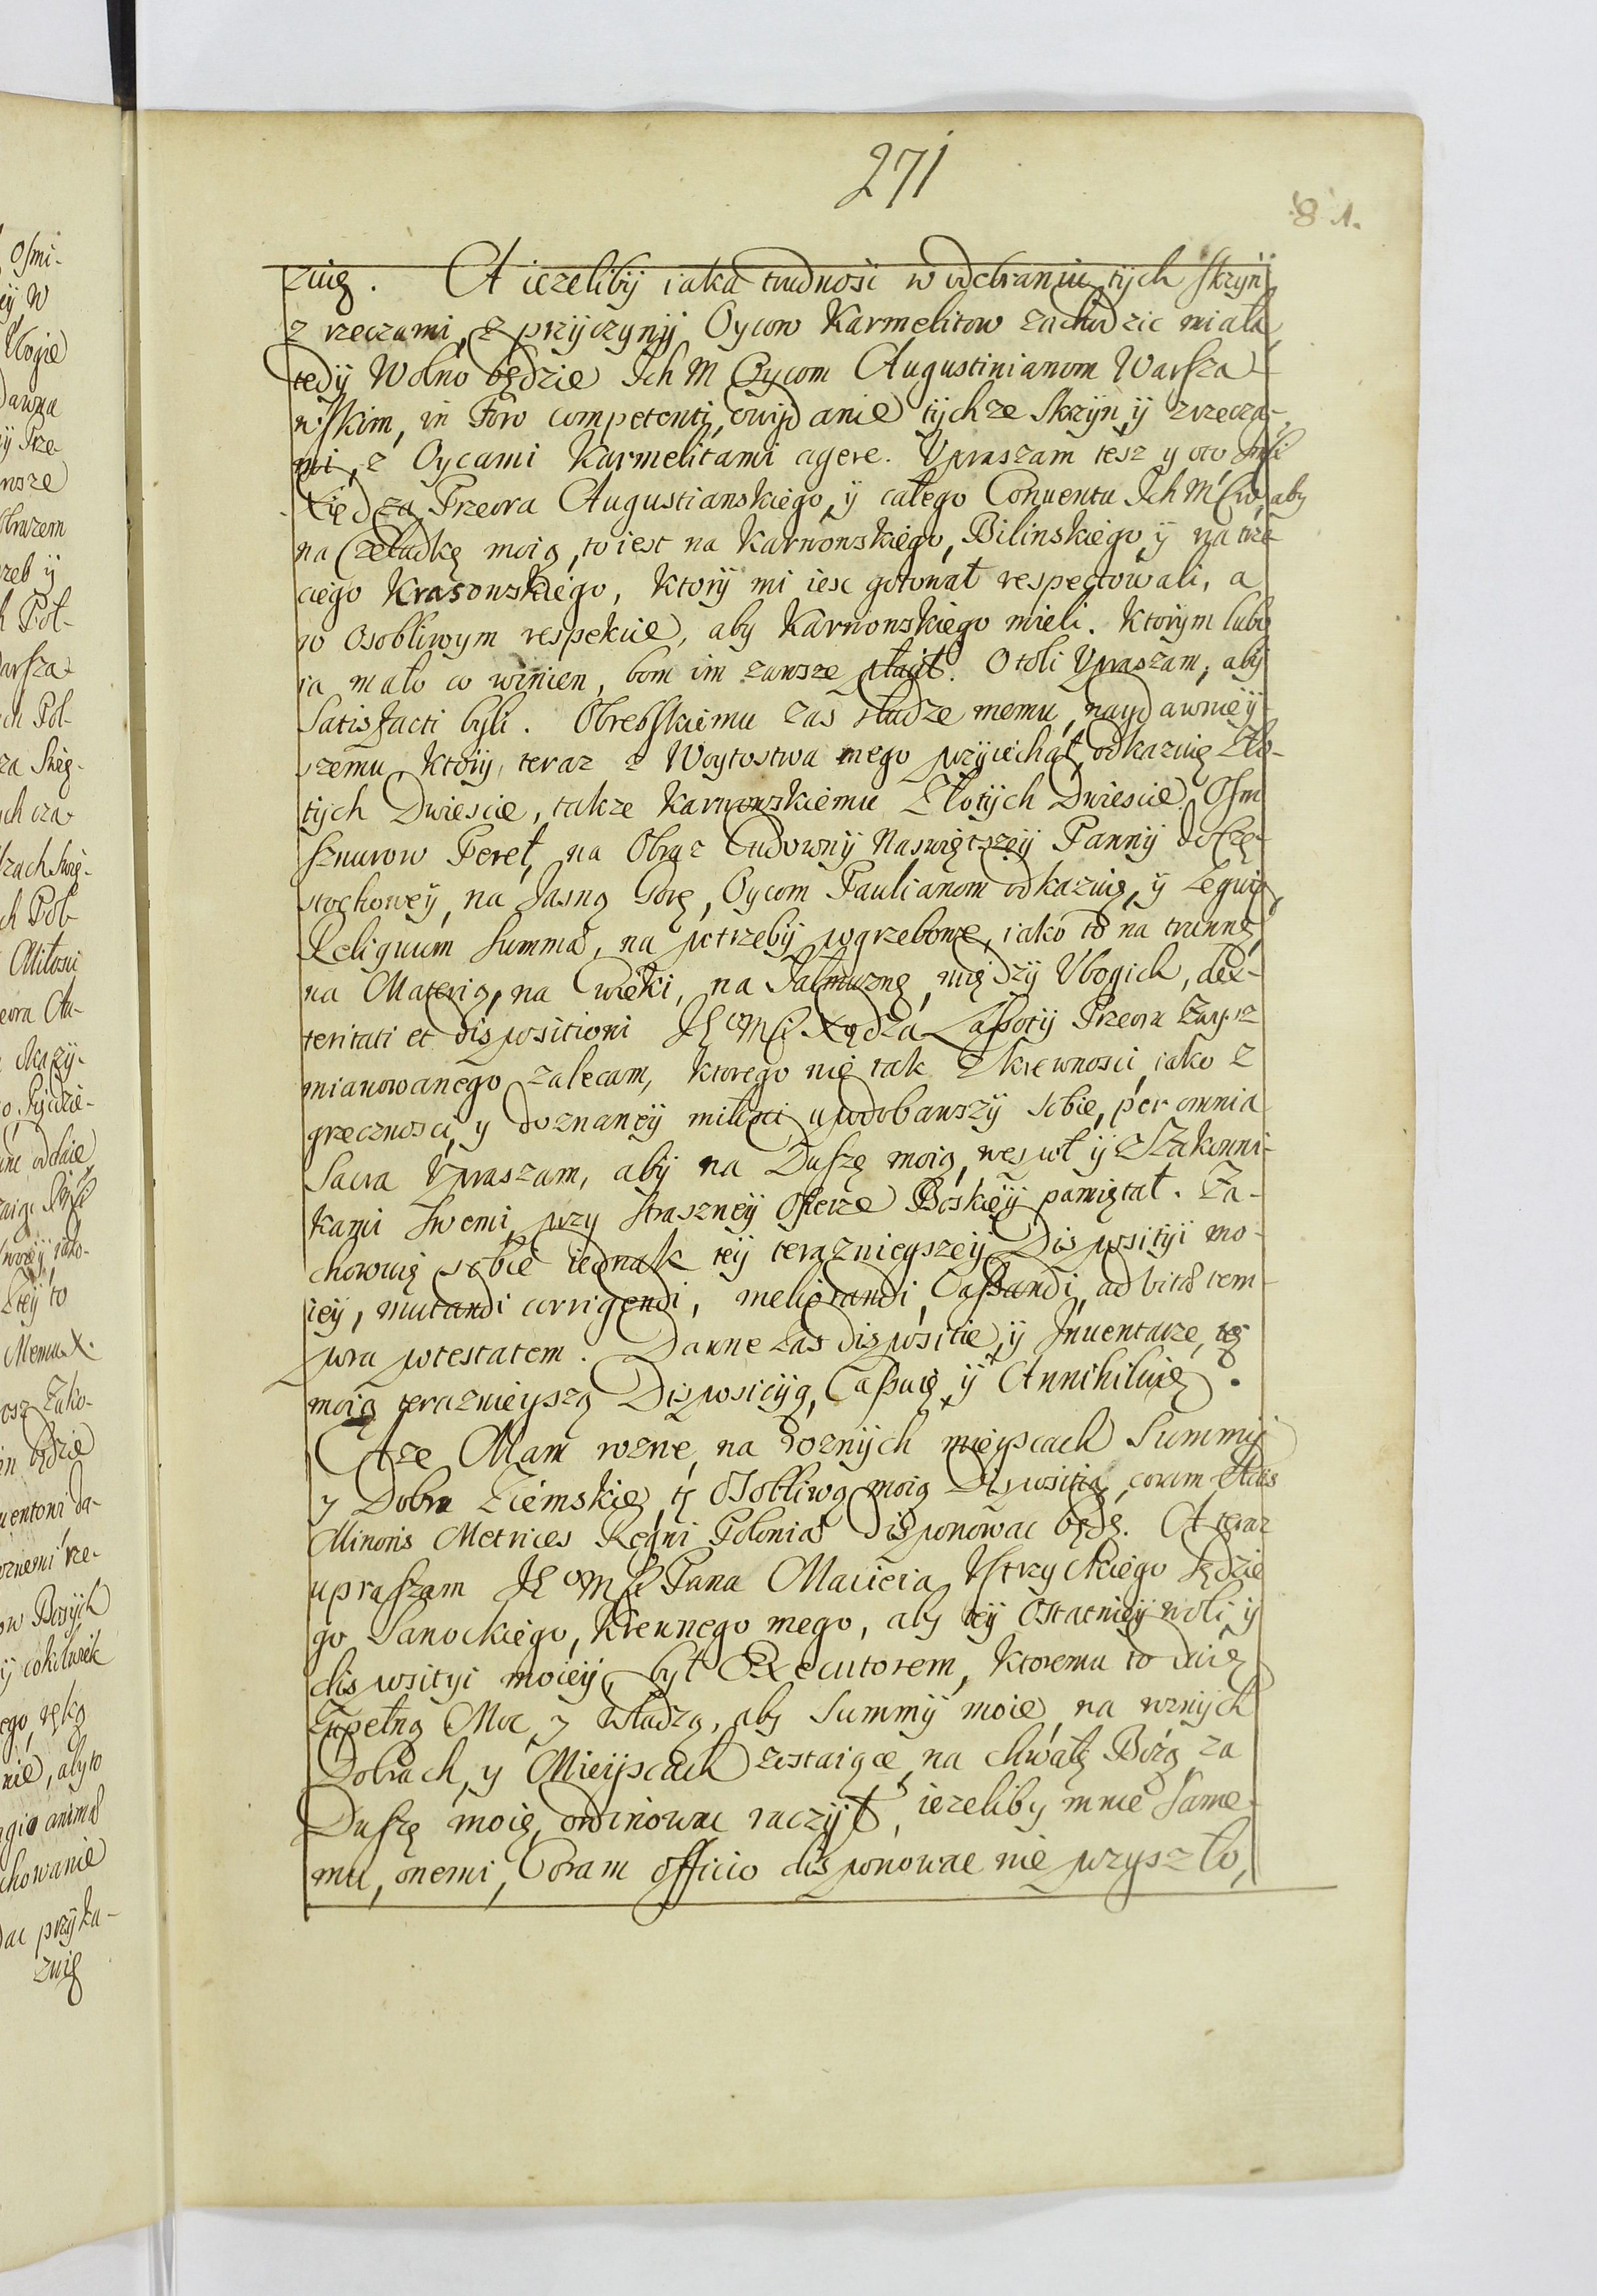 271
81.
zuię. A iezelibÿ iaka trudnosc w odebraniu tÿch skrzÿn
z rzeczami, z przÿczynÿ Oycow Karmelitow zachodzic miała,
tedÿ Wolno będzie Ich M Oycom Augustinianom Warsza-
wskim, in Foro competenti, o wÿdanie tÿchze Skrzyn, ÿ z rzecza-
mi, z Oycami Karmelitami agere. Vpraszam tesz y
Xiędza Przeora Augustianskiego, ÿ całego Conuentu Ich Mciow, aby
na Czeladkę moię, to iest na Karnowskiego, Bilinskiego, ÿ na trze-
ciego Krasowskiego, ktorÿ mi iesc gotował respectowali, a
w osobliwym respekcie, aby Karnowskiego mieli. Ktorÿm lubo
ia mało co winien, bom im zawsze płacił. Otoli Vpraszam, abÿ
Satisfacti byli. Obrebskiemu zas słudze memu, naydawnieÿ-
szemu, ktorÿ, teraz z Woytostwa mego przyiechał, odkazuię Zło-
tÿch Dwiescie, takze Karnowskiemu Złotÿch Dwiescie. Osm
sznurow Pereł, na Obraz Cudownÿ Naswiętszeÿ Pannÿ do Czę-
stochoweÿ, na Jasną Gorę, Oycom Paulianom odkazuię, ÿ Leguię
Reliquum Summæ, na potrzebÿ pogrzebowe, iako to na trunnę,
na Materią, na Cwieki, na Jałmuznę, międzÿ Vbogich, dex-
teritati et dispositioni JE Mci Xiędza Łapotÿ Przeora zwysz
mianowanego zalecam, ktorego nie tak z krewnosci, iako z
grzecznosci, y doznaneÿ miłosci, upodobawszÿ sobie, per omnia
Sacra Vpraszam, abÿ na Duszę moię, wespoł ÿ z Zakonni-
kami Swemi, przy straszneÿ Ofierze Boskieÿ pamiętał. Za-
chowuię sobie iednak teÿ teraznieyszeÿ Dispositÿi mo-
ieÿ, mutandi corrigendi, meliorandi, Cassandi, ad vitæ tem-
pora potestatem. Dawne zas dispositie, ÿ Inuentarze, tą
moią teraznieyszą Disposicÿą, Cassuię, ÿ Annihiluię.
A ze Mam rozne, na roznÿch mieyscach Summÿ
y Dobra Ziemskie, tą osobliwą moią Dispositią, coram Actis
Minoris Metrices Regni Poloniæ disponowac będę. A teraz
upraszam JE Mci Pana Macieia Vstrzyckiego Sędzie-
go Sanockiego, Krewnego mego, aby teÿ ostatnieÿ woli, ÿ
dispositÿi moieÿ, był Executorem, ktoremu to daię
Zupełną Moc, y władzą, aby Summÿ moie, na roznÿch
Dobrach, y Mieÿscach zostaiące, na chwałę Bozą, za
Duszę moię, ordinowac raczÿł, iezeliby mnie same-
mu, onemi, Coram officio disponowac nie przyszło,